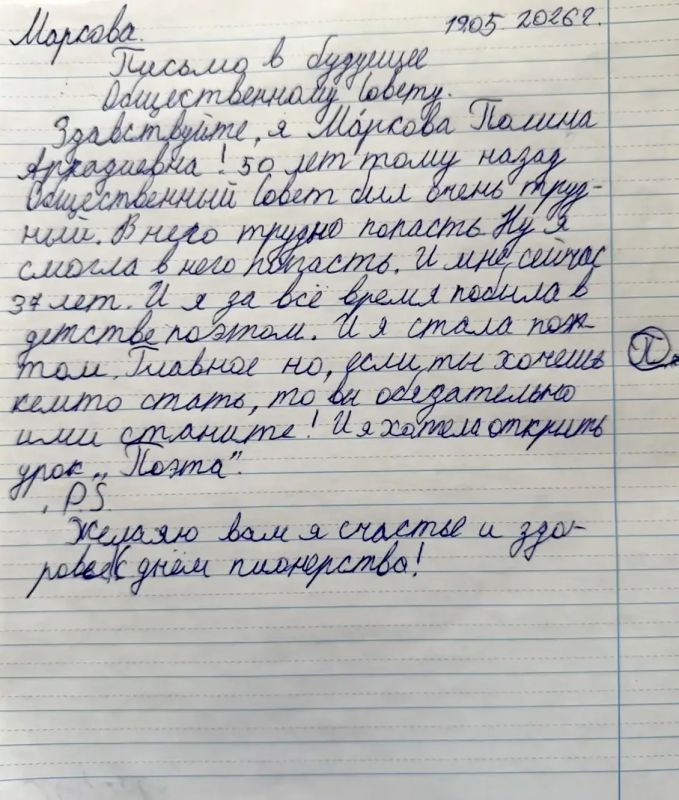 Маркова. 19.05 2026г.
Письмо в будущее
Общественному Совету.
Здавствуйте, я Маркова Полина
Аркадиевна! 50 лет тому назад
Общественный Совет бил очень труд-
ный. В него трудно попасть. Ну я
смогла в него попасть. И мне, сейчас
37 лет. И я за всё время побила в
детстве поэтом. И я стала поэ-
том. Главное но, если ты хочешь
кемто стать, то ви обезательно
ими станите! И я хотела открить
урок „Поэта".
P.S.
Желаяю вам я счастье и здо-
ровье С днём пионерства!